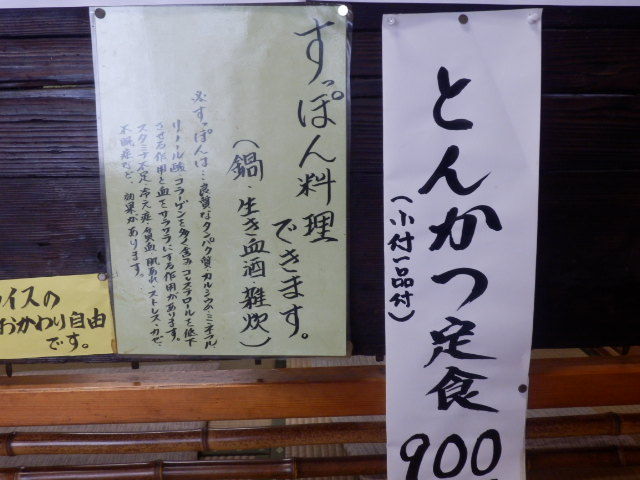 とんかつ定食
(小付一品付)
900
すっぽん料理
できます。
(鍋・生き血酒・雑炊)
※すっぽんは…良質なタンパク質・カルシウム・ミネラル
リノール酸 コラーゲンを多く含み コレステロールを低下
させる作用と血をサラサラにする作用があります。
スタミナ不足 冷え症・貧血 肌あれ・ストレス・カゼ・
不眠症など、効果があります。
イスの
おかわり自由
です。